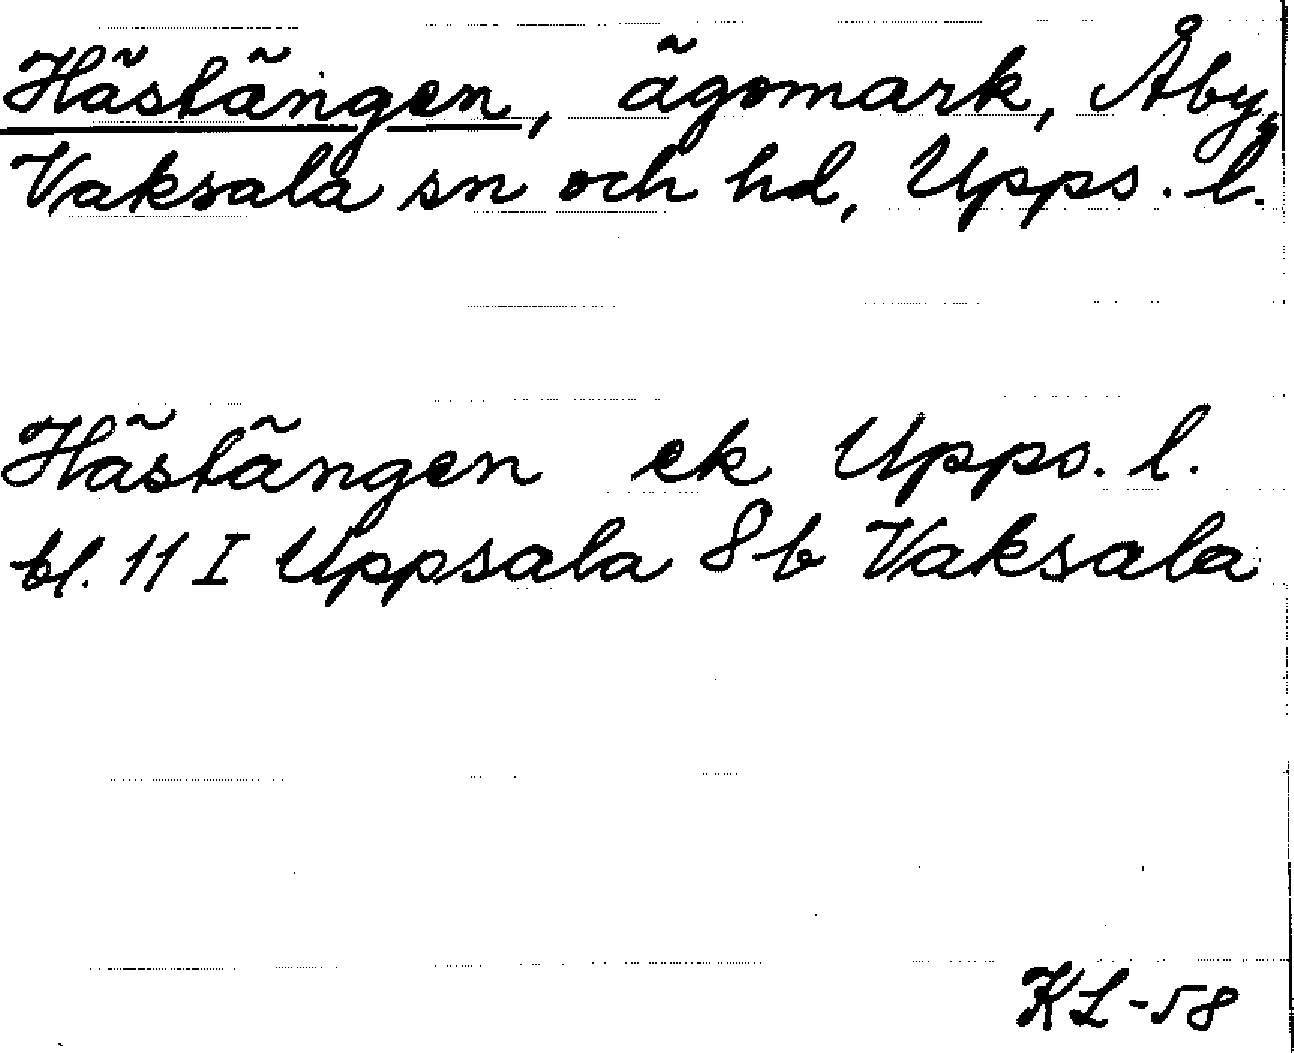 Hästängen, ägomark, Åby,
Vaksala sn och hd, Upps. l.
Hästängen ek Upps. l.
bl. 11 I Uppsala 8b Vaksala
KL-58